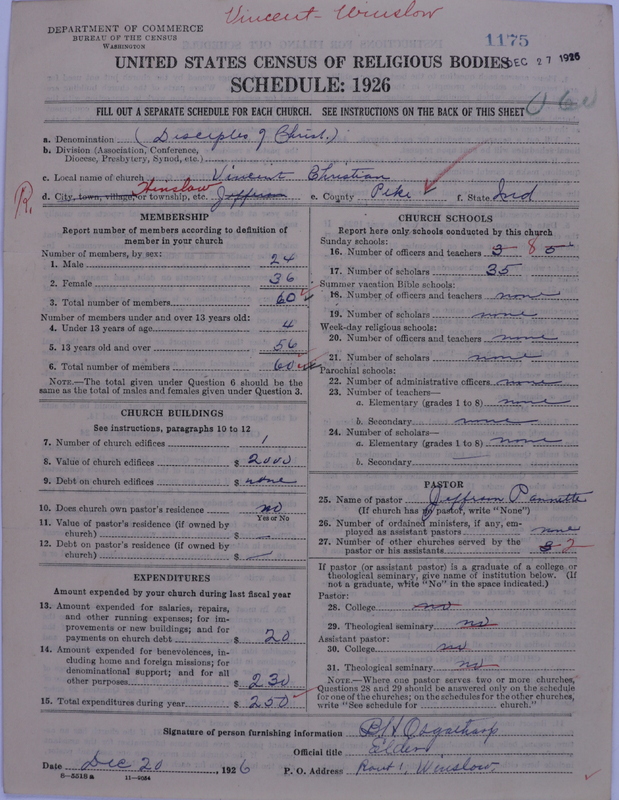 Vincent - Winslow
DEPARTMENT OF COMMERCE
BUREAU OF THE CENSUS
WASHINGTON
1175
DEC 27 1926
UNITED STATES CENSUS OF RELIGIOUS BODIES
SCHEDULE: 1926
060
FILL OUT A SEPARATE SCHEDULE FOR EACH CHURCH. SEE INSTRUCTIONS ON THE BACK OF THIS SHEET
a. Denomination (Disciples of Christ.)
b. Division (Association, Conference,
Diocese, Presbytery, Synod, etc.)
c. Local name of church Vincent Christian
R. d. City, town, village, or township, etc. Winslow Jefferson e. County Pike f. State Ind
MEMBERSHIP
Report number of members according to definition of
member in your church
Number of members, by sex:
1. Male 24
2. Female 36
3. Total number of members 60
Number of members under and over 13 years old:
4. Under 13 years of age 4
5. 13 years old and over 56
6. Total number of members 60
NOTE.—The total given under Question 6 should be the
same as the total of males and females given under Question 3.
CHURCH BUILDINGS
See instructions, paragraphs 10 to 12
7. Number of church edifices 1
8. Value of church edifices $ 2000
9. Debt on church edifices $ none
10. Does church own pastor's residence no
Yes or No
11. Value of pastor's residence (if owned by
church) $ —
12. Debt on pastor's residence (if owned by
church) $ —
EXPENDITURES
Amount expended by your church during last fiscal year
13. Amount expended for salaries, repairs,
and other running expenses; for im-
provements or new buildings; and for
payments on church debt $ 20
14. Amount expended for benevolences, in-
cluding home and foreign missions; for
denominational support; and for all
other purposes $ 230
15. Total expenditures during year $ 250
CHURCH SCHOOLS
Report here only schools conducted by this church
Sunday schools:
16. Number of officers and teachers 3 8 5
17. Number of scholars 35
Summer vacation Bible schools:
18. Number of officers and teachers none
19. Number of scholars none
Week-day religious schools:
20. Number of officers and teachers none
21. Number of scholars none
Parochial schools:
22. Number of administrative officers none
23. Number of teachers—
a. Elementary (grades 1 to 8) none
b. Secondary none
24. Number of scholars—
a. Elementary (grades 1 to 8) none
b. Secondary —
PASTOR
25. Name of pastor
(If church has no pastor, write "None")
26. Number of ordained ministers, if any, em-
ployed as assistant pastors none
27. Number of other churches served by the
pastor or his assistants 3 2
If pastor (or assistant pastor) is a graduate of a college or
theological seminary, give name of institution below. (If
not a graduate, write "No" in the space indicated.)
Pastor:
28. College no
29. Theological seminary no
Assistant pastor:
30. College no
31. Theological seminary no
NOTE.—Where one pastor serves two or more churches,
Questions 28 and 29 should be answered only on the schedule
for one of the churches; on the schedules for the other churches,
write "See schedule for church."
Signature of person furnishing information
Official title Elder
Date Dec 20, 1926 P. O. Address Rout 1, Winslow
8-5518a 11-9054